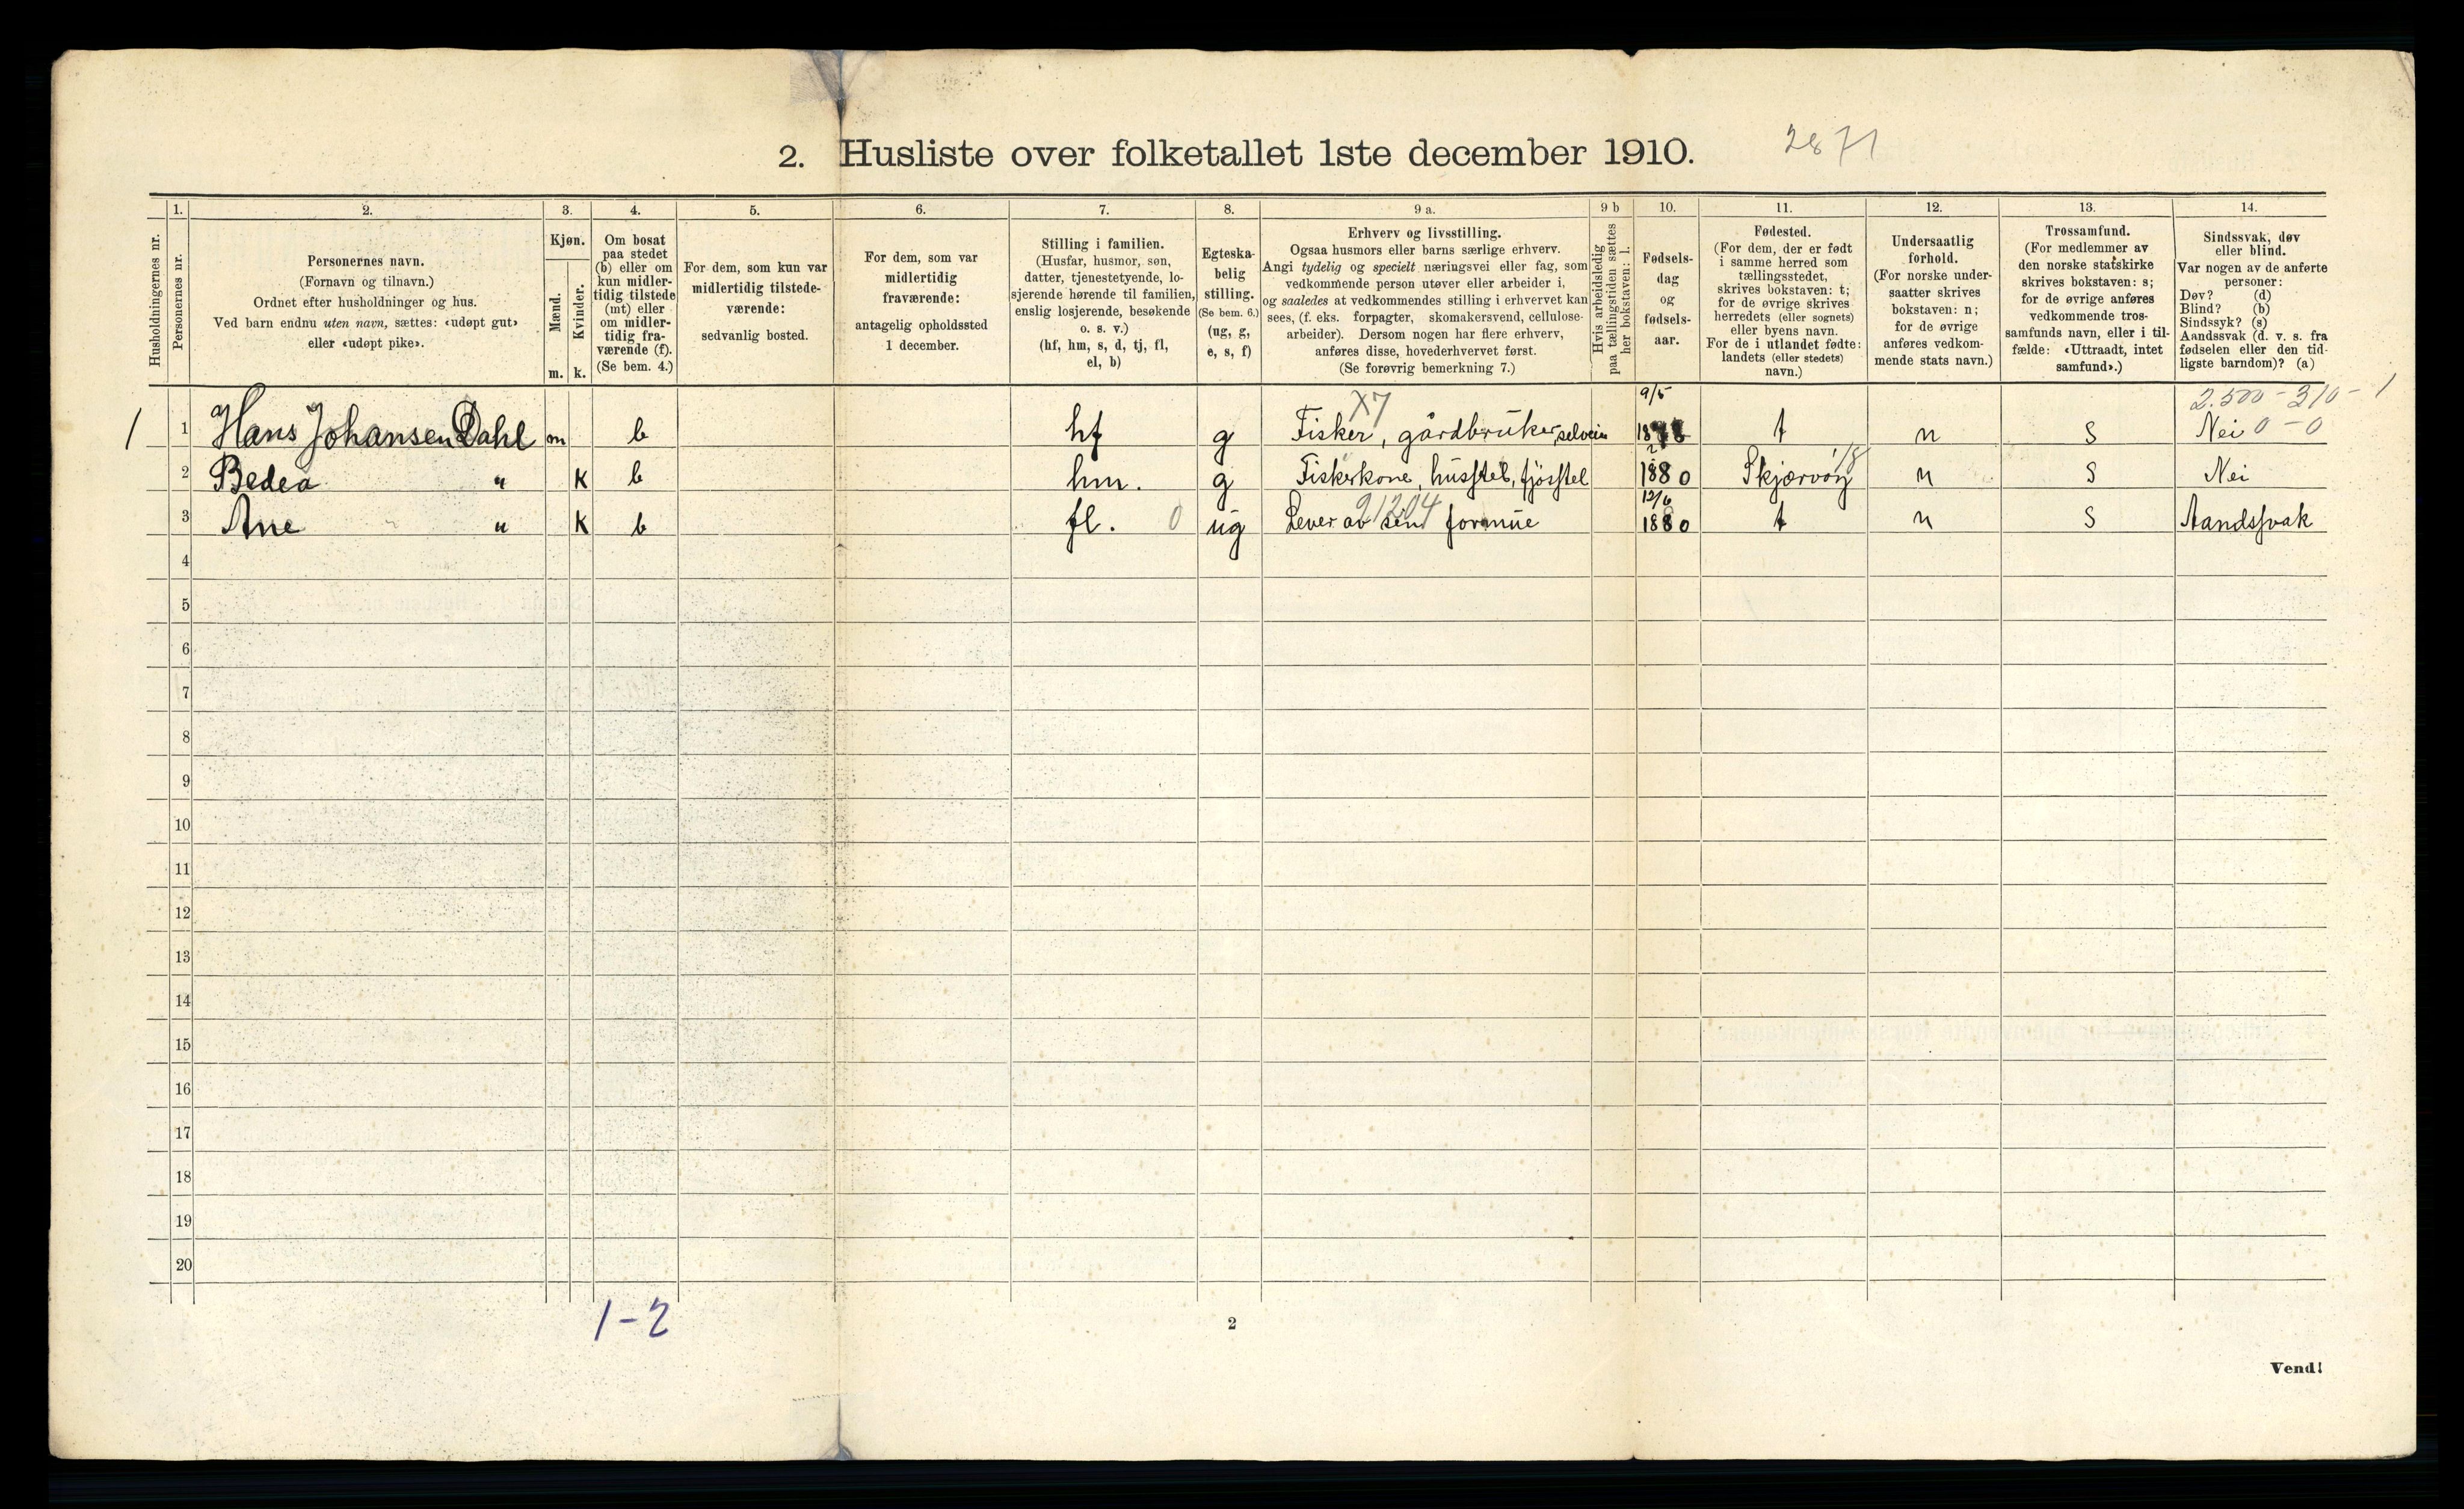 2. Husliste over folketallet 1ste december 1910. 2871
Husholdningernes nr.
1.
Personernes nr.
2.
Personernes navn.
(Fornavn og tilnavn.)
Ordnet efter husholdninger og hus.
Ved barn endnu uten navn, sættes: «udøpt gut»
eller «udøpt pike».
3.
Kjøn.
Mænd.
Kvinder.
m. k.
4.
Om bosat
paa stedet
(b) eller om
kun midler-
tidig tilstede
(mt) eller
om midler-
tidig fra-
værende (f).
(Se bem. 4.)
5.
For dem, som kun var
midlertidig tilstede-
værende:
sedvanlig bosted.
6.
For dem, som var
midlertidig
fraværende:
antagelig opholdssted
1 december.
7.
Stilling i familien.
(Husfar, husmor, søn,
datter, tjenestetyende, lo-
sjerende hørende til familien,
enslig losjerende, besøkende
o. s. v.)
(hf, hm, s, d, tj, fl,
el, b)
8.
Egteska-
belig
stilling.
(Se bem. 6.)
(ug, g,
e, s, f)
9 a.
Erhverv og livsstilling.
Ogsaa husmors eller barns særlige erhverv.
Angi tydelig og specielt næringsvei eller fag, som
vedkommende person utøver eller arbeider i,
og saaledes at vedkommendes stilling i erhvervet kan
sees, (f. eks. forpagter, skomakersvend, cellulose-
arbeider). Dersom nogen har flere erhverv,
anføres disse, hovederhvervet først.
(Se forøvrig bemerkning 7.)
9 b
Hvis arbeidsledig
paa tællingstiden sættes
her bokstaven: l.
10.
Fødsels-
dag
og
fødsels-
aar.
11.
Fødested.
(For dem, der er født
i samme herred som
tællingsstedet,
skrives bokstaven: t;
for de øvrige skrives
herredets (eller sognets)
eller byens navn.
For de i utlandet fødte:
landets (eller stedets)
navn.)
12.
Undersaatlig
forhold.
(For norske under-
saatter skrives
bokstaven: n;
for de øvrige
anføres vedkom-
mende stats navn.)
13.
Trossamfund.
(For medlemmer av
den norske statskirke
skrives bokstaven: s;
for de øvrige anføres
vedkommende tros-
samfunds navn, eller i til-
fælde: «Uttraadt, intet
samfund».)
14.
Sindssvak, døv
eller blind.
Var nogen av de anførte
personer:
Døv? (d)
Blind? (b)
Sindssyk? (s)
Aandssvak (d. v. s. fra
fødselen eller den tid-
ligste barndom)? (a)
X7 9/5 2.500 - 310 - 1
1 1 Hans Johansen Dahl m b hf g Fisker, gårdbruker, selveier t n s Nei 0 - 0
2 Bedea " k b hm. g Fiskerkone, husstel, fjøsstel 1880 Skjærvøy 18 n s Nei
21204 12/6
3 Ane " k b fl. 0 ug Lever av sin formue 1880 t n s Aandssvak
4
5
6
7
8
9
10
11
12
13
14
15
16
17
18
19
20
1-2
2
Vend!